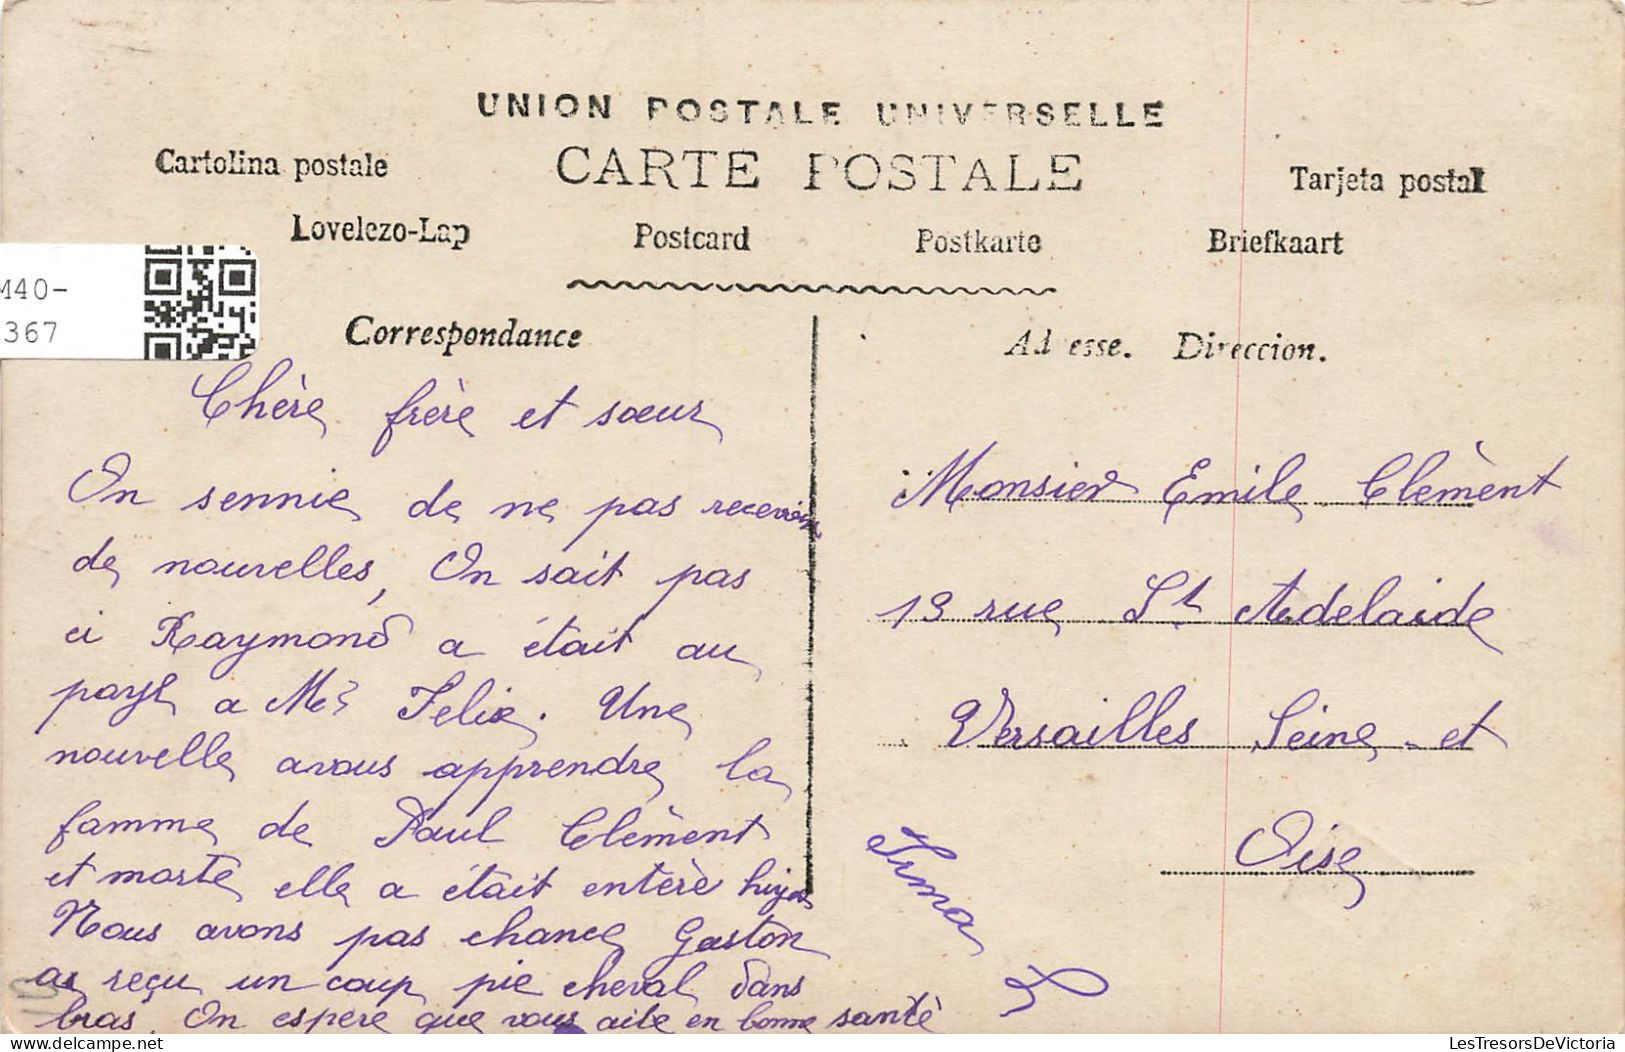 UNION POSTALE UNIVERSELLE
CARTE POSTALE
Cartolina postale
Tarjeta postal
Lovelezo-Lap
Postcard
Postkarte
Briefkaart
M40-
367
Correspondance
Adresse. Direccion.
Chère frère et sœur
On sennie de ne pas recevoir
de nouvelles, On sait pas
ci Raymond a était au
pays a Felix. Une
nouvelle avous apprendre la
famme de Paul Clèment
et morte elle a était entèrè
Nous avons pas chance Gaston
as reçu un coup pie cheval dans
bras. On espere que vous aite en bonne santè
Monsieur Emile Clèment
19 rue St Adelaide
Versailles Seine et
Oise
Irma
LesTresorsDeVictoria
delcampe.net